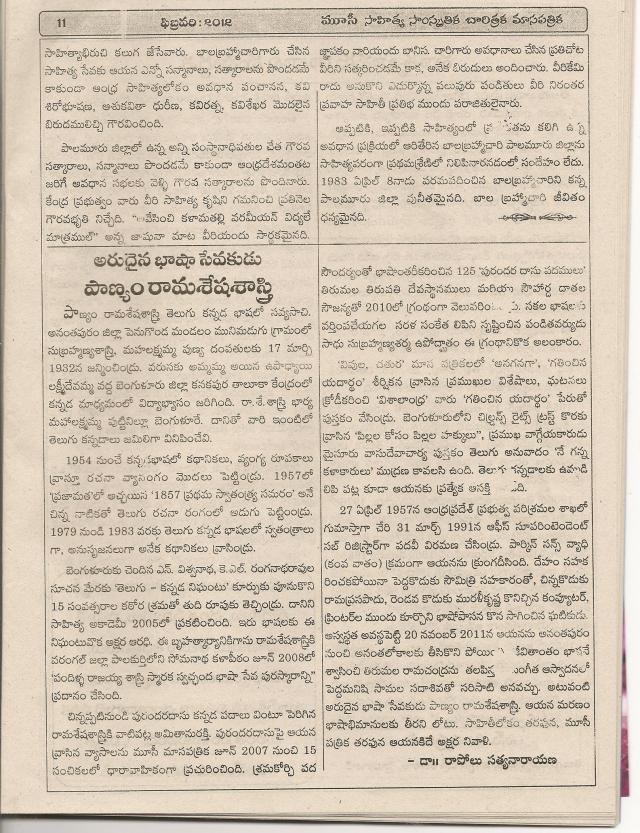 11
ఫిబ్రవరి: ౨౦౧౨
మూసీ సాహిత్య సాంస్కృతిక చారిత్రక మాసపత్రిక
సాహిత్యాభిరుచి కలుగ జేసేవారు. బాలబ్రహ్మాచారిగారు చేసిన
సాహిత్య సేవకు ఆయన ఎన్నో సన్మానాలు, సత్కారాలను పొందడమే
కాకుండా ఆంధ్ర సాహిత్యలోకం అవధాన పంచానన, కవి
శిరోభూషణ, ఆశుకవితా ధురీణ, కవిరత్న, కవిశేఖర మొదలైన
బిరుదములిచ్చి గౌరవించింది.
పాలమూరు జిల్లాలో ఉన్న అన్ని సంస్థానాధిపతుల చేత గౌరవ
సత్కారాలు, సన్మానాలు పొందడమే కాకుండా ఆంధ్రదేశమంతట
జరిగే అవధాన సభలకు వెళ్ళి గౌరవ సత్కారాలను పొందినారు.
కేంద్ర ప్రభుత్వం వారు వీరి సాహిత్య కృషిని గమనించి ప్రతినెల
గౌరవభృతి నిచ్చేది. సేవించి కళామతల్లి వరమీయన్ విద్యలే
మాత్రముల్" అన్న జాషువా మాట వీరియందు సార్థకమైనది.
జ్ఞాపకం వారియందు బానిస. చారిగారు అవధానాలు చేసిన ప్రతిచోట
వీరిని సత్కరించడమే కాక, అనేక బిరుదులు అందించారు. వీరికేమి
రాదు అనుకొని ఎదుర్కొన్న పలువురు పండితులు వీరి నిరంతర
ప్రవాహ సాహితీ ప్రతిభ ముందు పరాజితులైనారు.
అప్పటికి, ఇప్పటికి సాహిత్యంలో కలిగి ఉన్న
అవధాన ప్రక్రియలో ఆరితేరిన బాలబ్రహ్మాచారి పాలమూరు జిల్లాను
సాహిత్యపరంగా ప్రథమశ్రేణిలో నిలిపినారనడంలో సందేహం లేదు.
1983 ఏప్రిల్ 8నాడు పరమపదించిన బాలబ్రహ్మాచారిని కన్న
పాలమూరు జిల్లా పునీతమైనది. బాల బ్రహ్మాచారి జీవితం
ధన్యమైనది.
అరుదైన భాషా సేవకుడు
పాణ్యం రామశేషశాస్త్రి
పాణ్యం రామశేషశాస్త్రి తెలుగు కన్నడ భాషలో సవ్యసాచి.
అనంతపురం జిల్లా పెనుగొండ మండలం మునిమడుగు గ్రామంలో
సుబ్రహ్మణ్యశాస్త్రి, మహలక్ష్మమ్మ పుణ్య దంపతులకు 17 మార్చి
1932న జన్మించిండ్రు. వరుసకు అమ్మమ్మ అయిన ఉపాధ్యాయి
లక్ష్మీదేవమ్మ వద్ద బెంగుళూరు జిల్లా కనకపుర తాలూకా కేంద్రంలో
కన్నడ మాధ్యమంలో విద్యాభ్యాసం జరిగింది. రా.శే.శాస్త్రి భార్య
మహాలక్ష్మమ్మ పుట్టినిల్లూ బెంగుళూరే. దానితో వారి ఇంటింలో
తెలుగు కన్నడాలు జమిలిగా వినిపించేవి.
1954 నుంచే కన్నడభాషలో కథానికలు, వ్యంగ్య రూపకాలు
వ్రాస్తూ రచనా వ్యాసంగం మొదలు పెట్టిండ్రు. 1957లో
'ప్రజామత'లో అచ్చయిన '1857 ప్రథమ స్వాతంత్ర్య సమరం' అనే
చిన్న నాటికతో తెలుగు రచనా రంగంలో అడుగు పెట్టిండ్రు.
1979 నుండి 1983 వరకు తెలుగు కన్నడ భాషలలో స్వతంత్రాలు
గా, అనుసృజనలుగా అనేక కథానికలు వ్రాసిండ్రు.
బెంగుళూరుకు చెందిన ఎన్. విశ్వనాథ, కె.ఎల్. రంగనాథరావుల
సూచన మేరకు 'తెలుగు - కన్నడ నిఘంటు' కూర్పుకు పూనుకొని
15 సంవత్సరాల కఠోర శ్రమతో తుది రూపుకు తెచ్చిండ్రు. దానిని
సాహిత్య అకాడెమీ 2005లో ప్రకటించింది. ఇరు భాషలకు ఈ
నిఘంటువొక అక్షర ఆరధి. ఈ బృహత్కార్యానికిగాను రామశేషశాస్త్రికి
వరంగల్ జిల్లా పాలకుర్తిలోని సోమనాథ కళాపీఠం జూన్ 2008లో
'పందిళ్ళ రాజయ్య శాస్త్రి స్మారక స్వచ్ఛంద భాషా సేవ పురస్కారాన్ని'
ప్రదానం చేసింది.
చిన్నప్పటినుండి పురందరదాసు కన్నడ పదాలు వింటూ పెరిగిన
రామశేషశాస్త్రికి వాటిపట్ల అమితానురక్తి. పురందరదాసుపై ఆయన
వ్రాసిన వ్యాసాలను మూసీ మాసపత్రిక జూన్ 2007 నుంచి 15
సంచికలలో ధారావాహికంగా ప్రచురించింది. శ్రమకోర్చి పద
సౌందర్యంతో భాషాంతరీకరించిన 125 'పురందర దాసు పదములు'
తిరుమల తిరుపతి దేవస్థానములు మరియు సౌహార్ద దాతల
సౌజన్యతో 2010లో గ్రంథంగా వెలువరిం సకల భాషలకు
వర్తింపచేయగల సరళ సంకేత లిపిని సృష్టించిన పండితవర్యుడు
సాధు సుబ్రహ్మణ్యశర్మ ఉపోద్ఘాతం ఈ గ్రంథానికొక అలంకారం.
'విపుల, చతుర' మాస పత్రికలలో 'అనగనగా', 'గతించిన
యదార్థం' శీర్షికన వ్రాసిన ప్రముఖుల విశేషాలు, ఘటనలు
క్రోడీకరించి 'విశాలాంధ్ర' వారు 'గతించిన యదార్థం' పేరుతో
పుస్తకం వేసిండ్రు. బెంగుళూరులోని చిల్డ్రన్స్ రైట్స్ ట్రస్ట్ కొరకు
వ్రాసిన "పిల్లల కోసం పిల్లల హక్కులు", ప్రముఖ వాగ్గేయకారుడు
మైసూరు వాసుదేవాచార్య పుస్తకం తెలుగు అనువాదం 'నే గన్న
కళాకారులు' ముద్రణ కావలసి ఉంది. తెలుగు కన్నడాలకు ఉమ్మడి
లిపి పట్ల కూడా ఆయనకు ప్రత్యేక ఆసక్తి
27 ఏప్రిల్ 1957న ఆంధ్రప్రదేశ్ ప్రభుత్వ పరిశ్రమల శాఖలో
గుమాస్తాగా చేరి 31 మార్చ్ 1991న ఆఫీస్ సూపరింటెండెంట్
సబ్ రిజిస్ట్రార్‌గా పదవీ విరమణ చేసిండ్రు. పార్కిన్ సన్స్ వ్యాధి
(కంప వాతం) క్రమంగా ఆయనను క్రుంగదీసింది. దేహం సహక
రించకపోయినా పెద్దకొడుకు సౌమిత్రి సహకారంతో, చిన్నకొడుకు
రామప్రసపాదు, రెండవ కొడుకు మురళీకృష్ణ కొనిచ్చిన కంప్యూటర్,
ప్రింటర్‌ల ముందు కూర్చొని భాషోపాసన కొన సాగించిన ఘటికుడు.
అస్వస్థత అవస్థపెట్టి 20 నవంబర్ 2011న ఆయనను అనంతపురం
నుంచి అనంతలోకాలకు తీసికొని పోయిం జీవితాంతం భాషనే
శ్వాసించి తిరుమల రామచంద్రను తలపిస్తే సంగీత ఆస్వాదనలో
పెద్దమనిషి సామల సదాశివతో సరిసాటి అనవచ్చు. అటువంటి
అరుదైన భాషా సేవకుడు పాణ్యం రామశేషశాస్త్రి. ఆయన మరణం
భాషాభిమానులకు తీరని లోటు. సాహితీలోకం తరఫున, మూసీ
పత్రిక తరఫున ఆయనకిదే అక్షర నివాళి.
- డా॥ రాపోలు సత్యనారాయణ